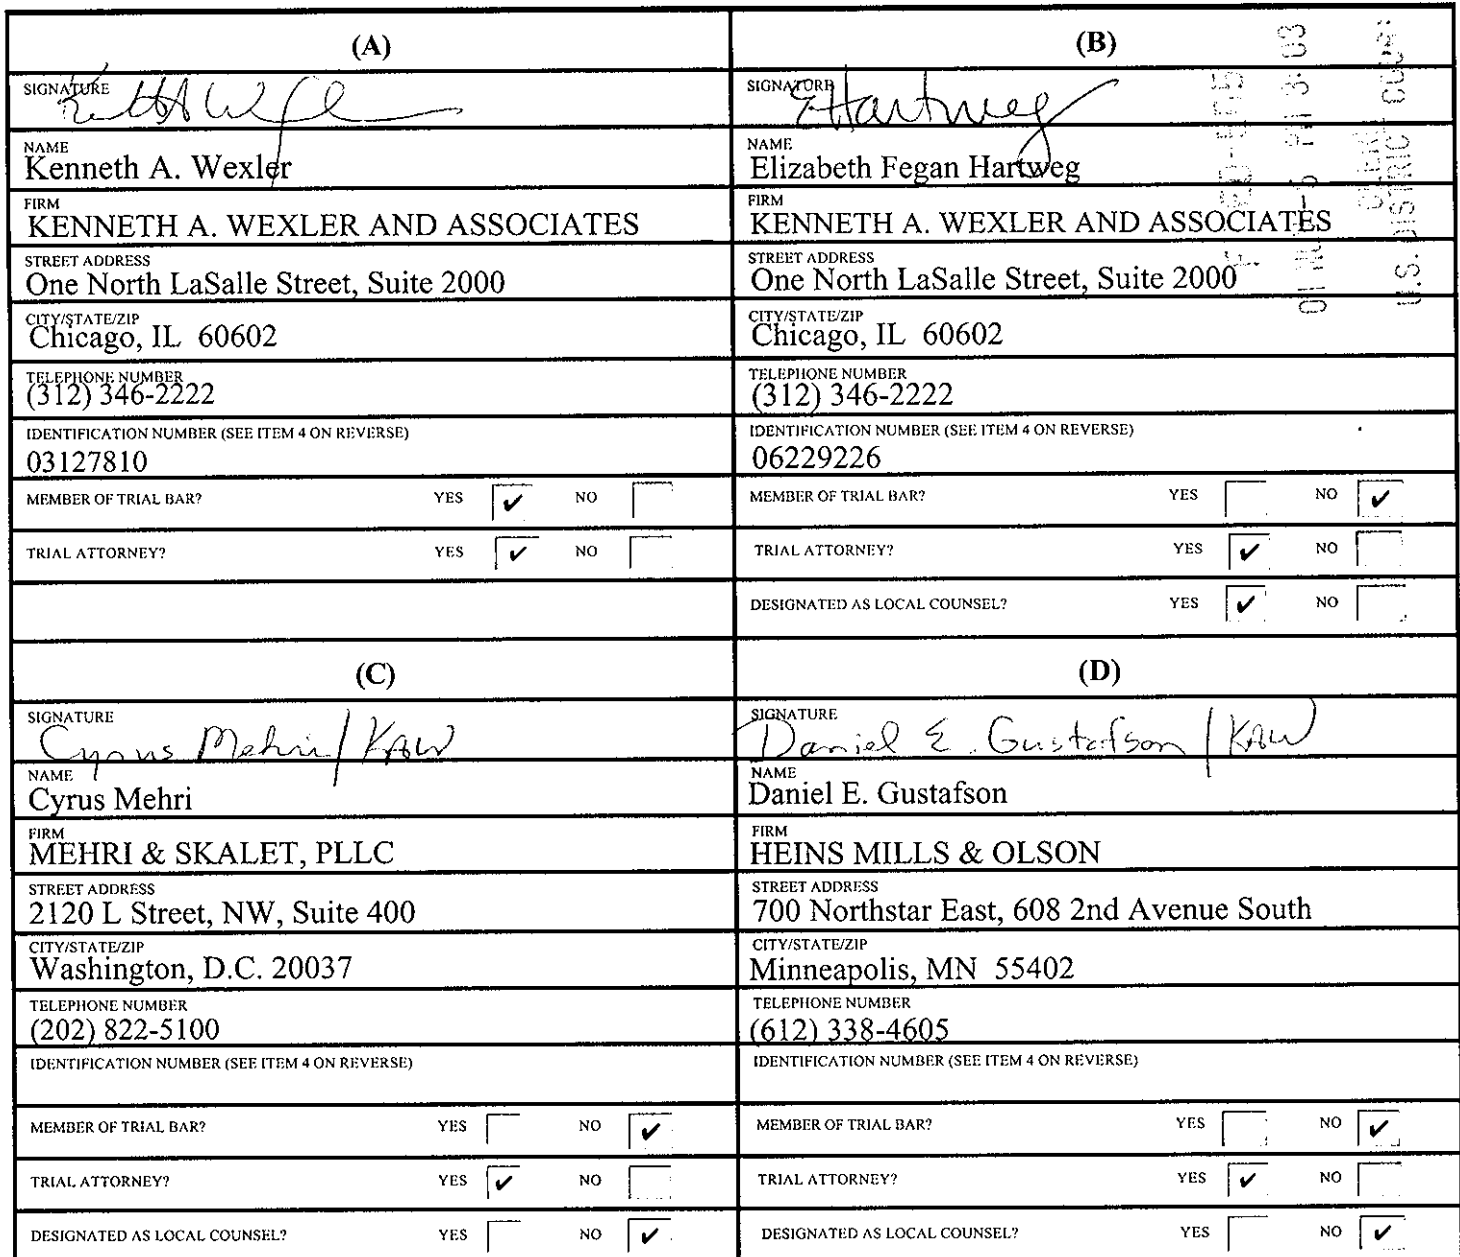 (A)
SIGNATURE
NAME
Kenneth A. Wexler
FIRM
KENNETH A. WEXLER AND ASSOCIATES
STREET ADDRESS
One North LaSalle Street, Suite 2000
CITY/STATE/ZIP
Chicago, IL 60602
TELEPHONE NUMBER
(312) 346-2222
IDENTIFICATION NUMBER (SEE ITEM 4 ON REVERSE)
03127810
MEMBER OF TRIAL BAR? YES ✔ NO
TRIAL ATTORNEY? YES ✔ NO
(B)
SIGNATURE
EHartweg
NAME
Elizabeth Fegan Hartweg
FIRM
KENNETH A. WEXLER AND ASSOCIATES
STREET ADDRESS
One North LaSalle Street, Suite 2000
CITY/STATE/ZIP
Chicago, IL 60602
TELEPHONE NUMBER
(312) 346-2222
IDENTIFICATION NUMBER (SEE ITEM 4 ON REVERSE)
06229226
MEMBER OF TRIAL BAR? YES NO ✔
TRIAL ATTORNEY? YES ✔ NO
DESIGNATED AS LOCAL COUNSEL? YES ✔ NO
U.S. DISTRIC
(C)
SIGNATURE
Cyrus Mehri/KAW
NAME
Cyrus Mehri
FIRM
MEHRI & SKALET, PLLC
STREET ADDRESS
2120 L Street, NW, Suite 400
CITY/STATE/ZIP
Washington, D.C. 20037
TELEPHONE NUMBER
(202) 822-5100
IDENTIFICATION NUMBER (SEE ITEM 4 ON REVERSE)
MEMBER OF TRIAL BAR? YES NO ✔
TRIAL ATTORNEY? YES ✔ NO
DESIGNATED AS LOCAL COUNSEL? YES NO ✔
(D)
SIGNATURE
Daniel E. Gustafson/KAW
NAME
Daniel E. Gustafson
FIRM
HEINS MILLS & OLSON
STREET ADDRESS
700 Northstar East, 608 2nd Avenue South
CITY/STATE/ZIP
Minneapolis, MN 55402
TELEPHONE NUMBER
(612) 338-4605
IDENTIFICATION NUMBER (SEE ITEM 4 ON REVERSE)
MEMBER OF TRIAL BAR? YES NO ✔
TRIAL ATTORNEY? YES ✔ NO
DESIGNATED AS LOCAL COUNSEL? YES NO ✔